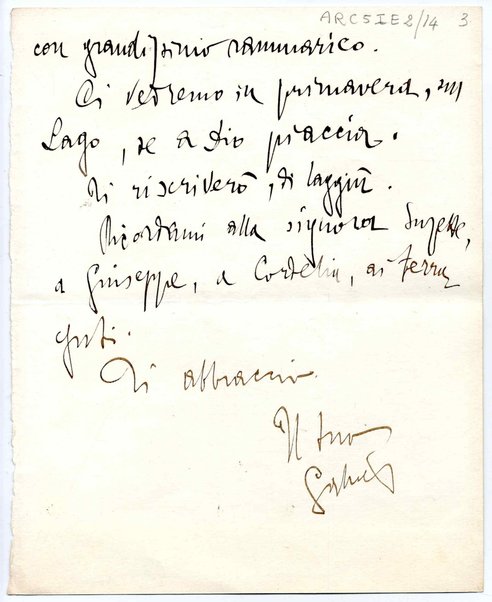 ARC5IE2/14 3
con grandissimo rammarico.
Ci vedremo in primavera, sul
Lago, se a Dio piaccia.
Ti riscriverò, di laggiù.
Ricordami alla signora Suzette,
a Giuseppe, a Cordelia, ai
Ti abbraccio.
Il tuo